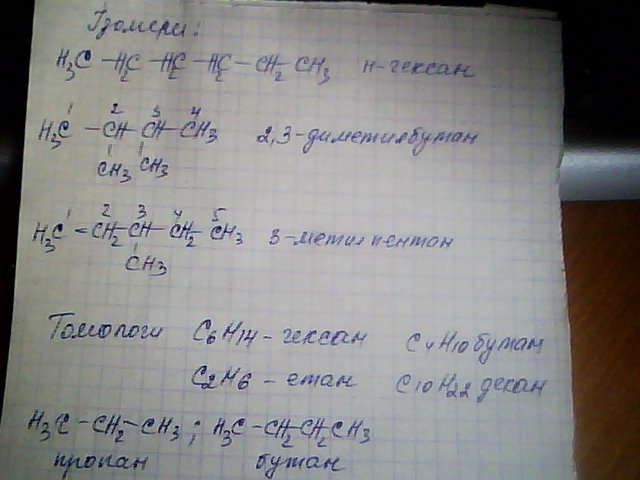 Ізомери:
H₃C – H₂C – H₂C – H₂C – CH₂ – CH₃ н-гексан
1 2 3 4
H₃C – CH – CH – CH₃ 2,3-диметилбутан
CH₃ CH₃
1 2 3 4 5
H₃C – CH₂ – CH – CH₂ – CH₃ 3-метилпентан
CH₃
Гомологи C₆H₁₄ – гексан C₄H₁₀ бутан
C₂H₆ – етан C₁₀H₂₂ декан
H₃C – CH₂ – CH₃ ; H₃C – CH₂ – CH₂ CH₃
пропан бутан